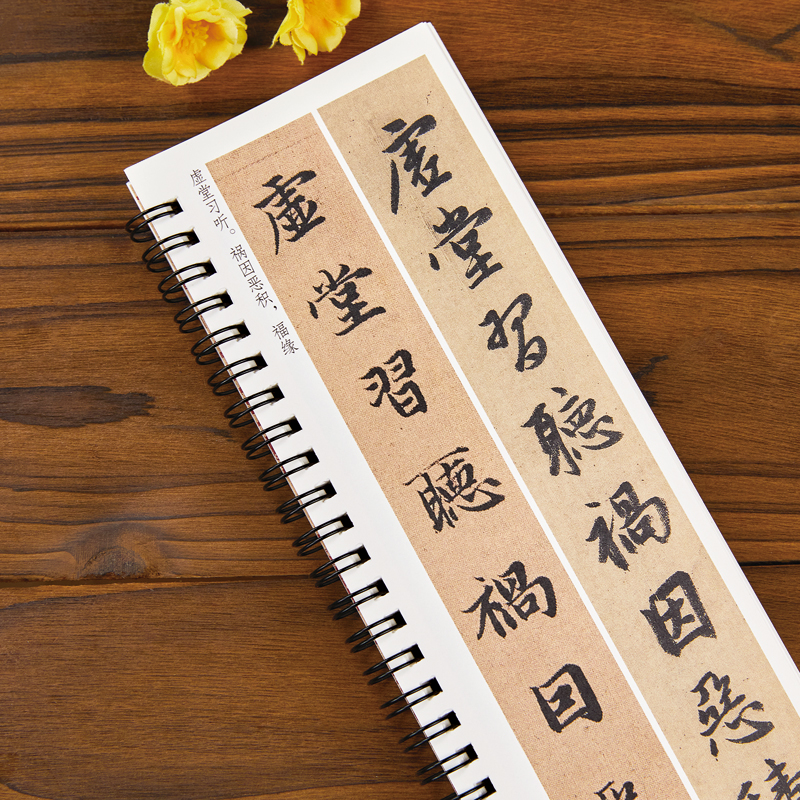 虚堂習聽禍因惡積
虚堂習聽禍因
虚堂习听。祸因恶积，福缘